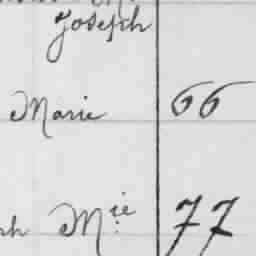 Joseph
Marie 66
ph Mie 77